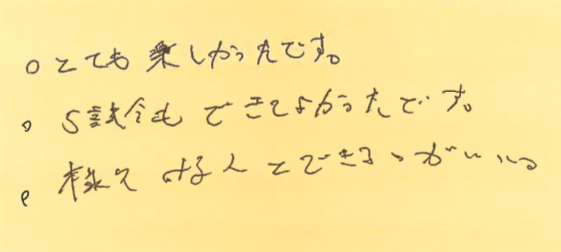 ○とても楽しかったです。
○ 5試合もできてよかったです。
○ 様々な人とできるのがいい